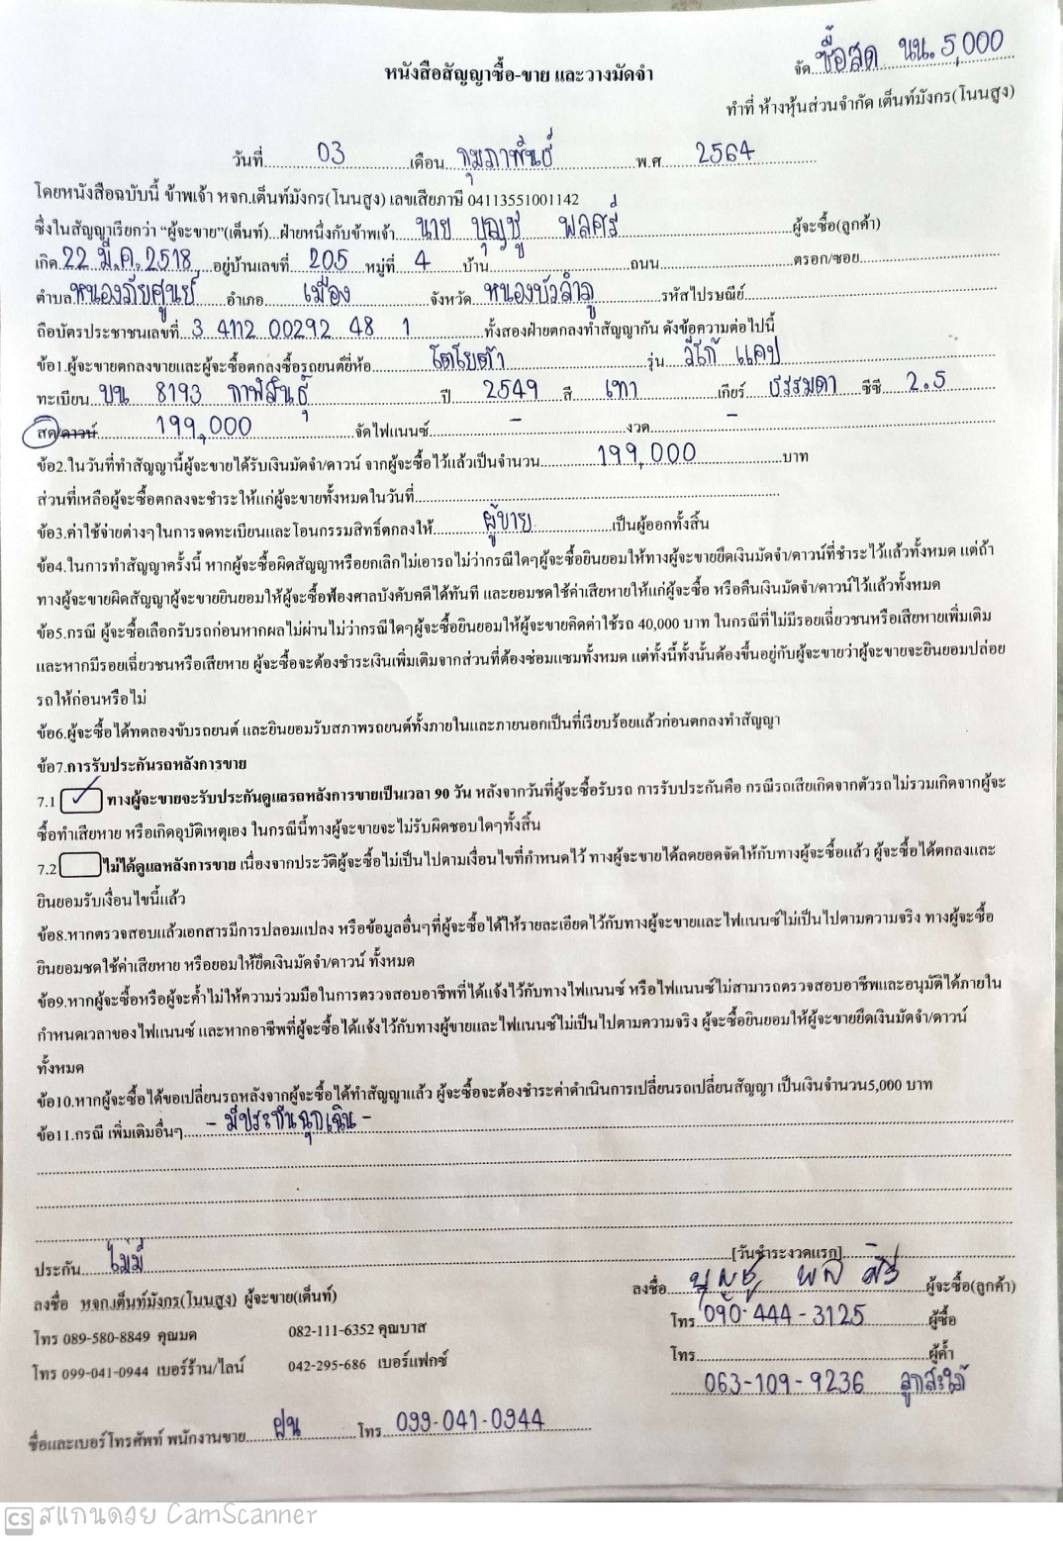 หนังสือสัญญาซื้อ-ขาย และวางมัดจำ
จัด ซื้อสด นน. 5,000
ทำที่ ห้างหุ้นส่วนจำกัด เต็นท์มังกร(โนนสูง)
วันที่ 03 เดือน กุมภาพันธ์ พ.ศ 2564
โดยหนังสือฉบับนี้ ข้าพเจ้า หจก.เต็นท์มังกร(โนนสูง) เลขเสียภาษี 04113551001142
ซึ่งในสัญญาเรียกว่า "ผู้จะขาย"(เต็นท์)...ฝ่ายหนึ่งกับข้าพเจ้า นาย บุญชู พลศรี ผู้จะซื้อ(ลูกค้า)
เกิด 22 มี.ค. 2518 อยู่บ้านเลขที่ 205 หมู่ที่ 4 บ้าน ถนน ตรอก/ซอย
ตำบล หนองภัยศูนย์ อำเภอ เมือง จังหวัด หนองบัวลำภู รหัสไปรษณีย์
ถือบัตรประชาชนเลขที่ 3 4112 00292 48 1 ทั้งสองฝ่ายตกลงทำสัญญากัน ดังข้อความต่อไปนี้
ข้อ1.ผู้จะขายตกลงขายและผู้จะซื้อตกลงซื้อรถยนต์ยี่ห้อ โตโยต้า รุ่น วีโก้ แคป
ทะเบียน บน 8193 กาฬสินธุ์ ปี 2549 สี เทา เกียร์ ธรรมดา ซีซี 2.5
สด/ดาวน์ 199,000 จัดไฟแนนซ์ - งวด -
ข้อ2.ในวันที่ทำสัญญานี้ผู้จะขายได้รับเงินมัดจำ/ดาวน์ จากผู้จะซื้อไว้แล้วเป็นจำนวน 199,000 บาท
ส่วนที่เหลือผู้จะซื้อตกลงจะชำระให้แก่ผู้จะขายทั้งหมดในวันที่
ข้อ3.ค่าใช้จ่ายต่างๆในการจดทะเบียนและโอนกรรมสิทธิ์ตกลงให้ ผู้ขาย เป็นผู้ออกทั้งสิ้น
ข้อ4.ในการทำสัญญาครั้งนี้ หากผู้จะซื้อผิดสัญญาหรือยกเลิกไม่เอารถไม่ว่ากรณีใดๆผู้จะซื้อยินยอมให้ทางผู้จะขายยึดเงินมัดจำ/ดาวน์ที่ชำระไว้แล้วทั้งหมด แต่ถ้า
ทางผู้จะขายผิดสัญญาผู้จะขายยินยอมให้ผู้จะซื้อฟ้องศาลบังคับคดีได้ทันที และยอมชดใช้ค่าเสียหายให้แก่ผู้จะซื้อ หรือคืนเงินมัดจำ/ดาวน์ไว้แล้วทั้งหมด
ข้อ5.กรณี ผู้จะซื้อเลือกรับรถก่อนหากผลไม่ผ่านไม่ว่ากรณีใดๆผู้จะซื้อยินยอมให้ผู้จะขายคิดค่าใช้รถ 40,000 บาท ในกรณีที่ไม่มีรอยเฉี่ยวชนหรือเสียหายเพิ่มเติม
และหากมีรอยเฉี่ยวชนหรือเสียหาย ผู้จะซื้อจะต้องชำระเงินเพิ่มเติมจากส่วนที่ต้องซ่อมแซมทั้งหมด แต่ทั้งนี้ทั้งนั้นต้องขึ้นอยู่กับผู้จะขายว่าผู้จะขายจะยินยอมปล่อย
รถให้ก่อนหรือไม่
ข้อ6.ผู้จะซื้อได้ทดลองขับรถยนต์ และยินยอมรับสภาพรถยนต์ทั้งภายในและภายนอกเป็นที่เรียบร้อยแล้วก่อนตกลงทำสัญญา
ข้อ7.การรับประกันรถหลังการขาย
7.1 ✓ ทางผู้จะขายจะรับประกันดูแลรถหลังการขายเป็นเวลา 90 วัน หลังจากวันที่ผู้จะซื้อรับรถ การรับประกันคือ กรณีรถเสียเกิดจากตัวรถไม่รวมเกิดจากผู้จะ
ซื้อทำเสียหาย หรือเกิดอุบัติเหตุเอง ในกรณีนี้ทางผู้จะขายจะไม่รับผิดชอบใดๆทั้งสิ้น
7.2 ไม่ได้ดูแลหลังการขาย เนื่องจากประวัติผู้จะซื้อไม่เป็นไปตามเงื่อนไขที่กำหนดไว้ ทางผู้จะขายได้ลดยอดจัดให้กับทางผู้จะซื้อแล้ว ผู้จะซื้อได้ตกลงและ
ยินยอมรับเงื่อนไขนี้แล้ว
ข้อ8.หากตรวจสอบแล้วเอกสารมีการปลอมแปลง หรือข้อมูลอื่นๆที่ผู้จะซื้อได้ให้รายละเอียดไว้กับทางผู้จะขายและไฟแนนซ์ไม่เป็นไปตามความจริง ทางผู้จะซื้อ
ยินยอมชดใช้ค่าเสียหาย หรือยอมให้ยึดเงินมัดจำ/ดาวน์ ทั้งหมด
ข้อ9.หากผู้จะซื้อหรือผู้จะค้ำไม่ให้ความร่วมมือในการตรวจสอบอาชีพที่ได้แจ้งไว้กับทางไฟแนนซ์ หรือไฟแนนซ์ไม่สามารถตรวจสอบอาชีพและอนุมัติได้ภายใน
กำหนดเวลาของไฟแนนซ์ และหากอาชีพที่ผู้จะซื้อได้แจ้งไว้กับทางผู้ขายและไฟแนนซ์ไม่เป็นไปตามความจริง ผู้จะซื้อยินยอมให้ผู้จะขายยึดเงินมัดจำ/ดาวน์
ทั้งหมด
ข้อ10.หากผู้จะซื้อได้ขอเปลี่ยนรถหลังจากผู้จะซื้อได้ทำสัญญาแล้ว ผู้จะซื้อจะต้องชำระค่าดำเนินการเปลี่ยนรถเปลี่ยนสัญญา เป็นเงินจำนวน5,000 บาท
ข้อ11.กรณี เพิ่มเติมอื่นๆ - มีประกันฉุกเฉิน -
ประกัน ไม่มี [วันชำระงวดแรก]
ลงชื่อ หจก.เต็นท์มังกร(โนนสูง) ผู้จะขาย(เต็นท์) ลงชื่อ บุญชู พลศรี ผู้จะซื้อ(ลูกค้า)
โทร 089-580-8849 คุณมด 082-111-6352 คุณบาส โทร 090-444-3125 ผู้ซื้อ
โทร 099-041-0944 เบอร์ร้าน/ไลน์ 042-295-686 เบอร์แฟกซ์ โทร ผู้ค้ำ
063-109-9236 ลูกสะใภ้
ชื่อและเบอร์โทรศัพท์ พนักงานขาย ฝน โทร 099-041-0944
CS สแกนด้วย CamScanner